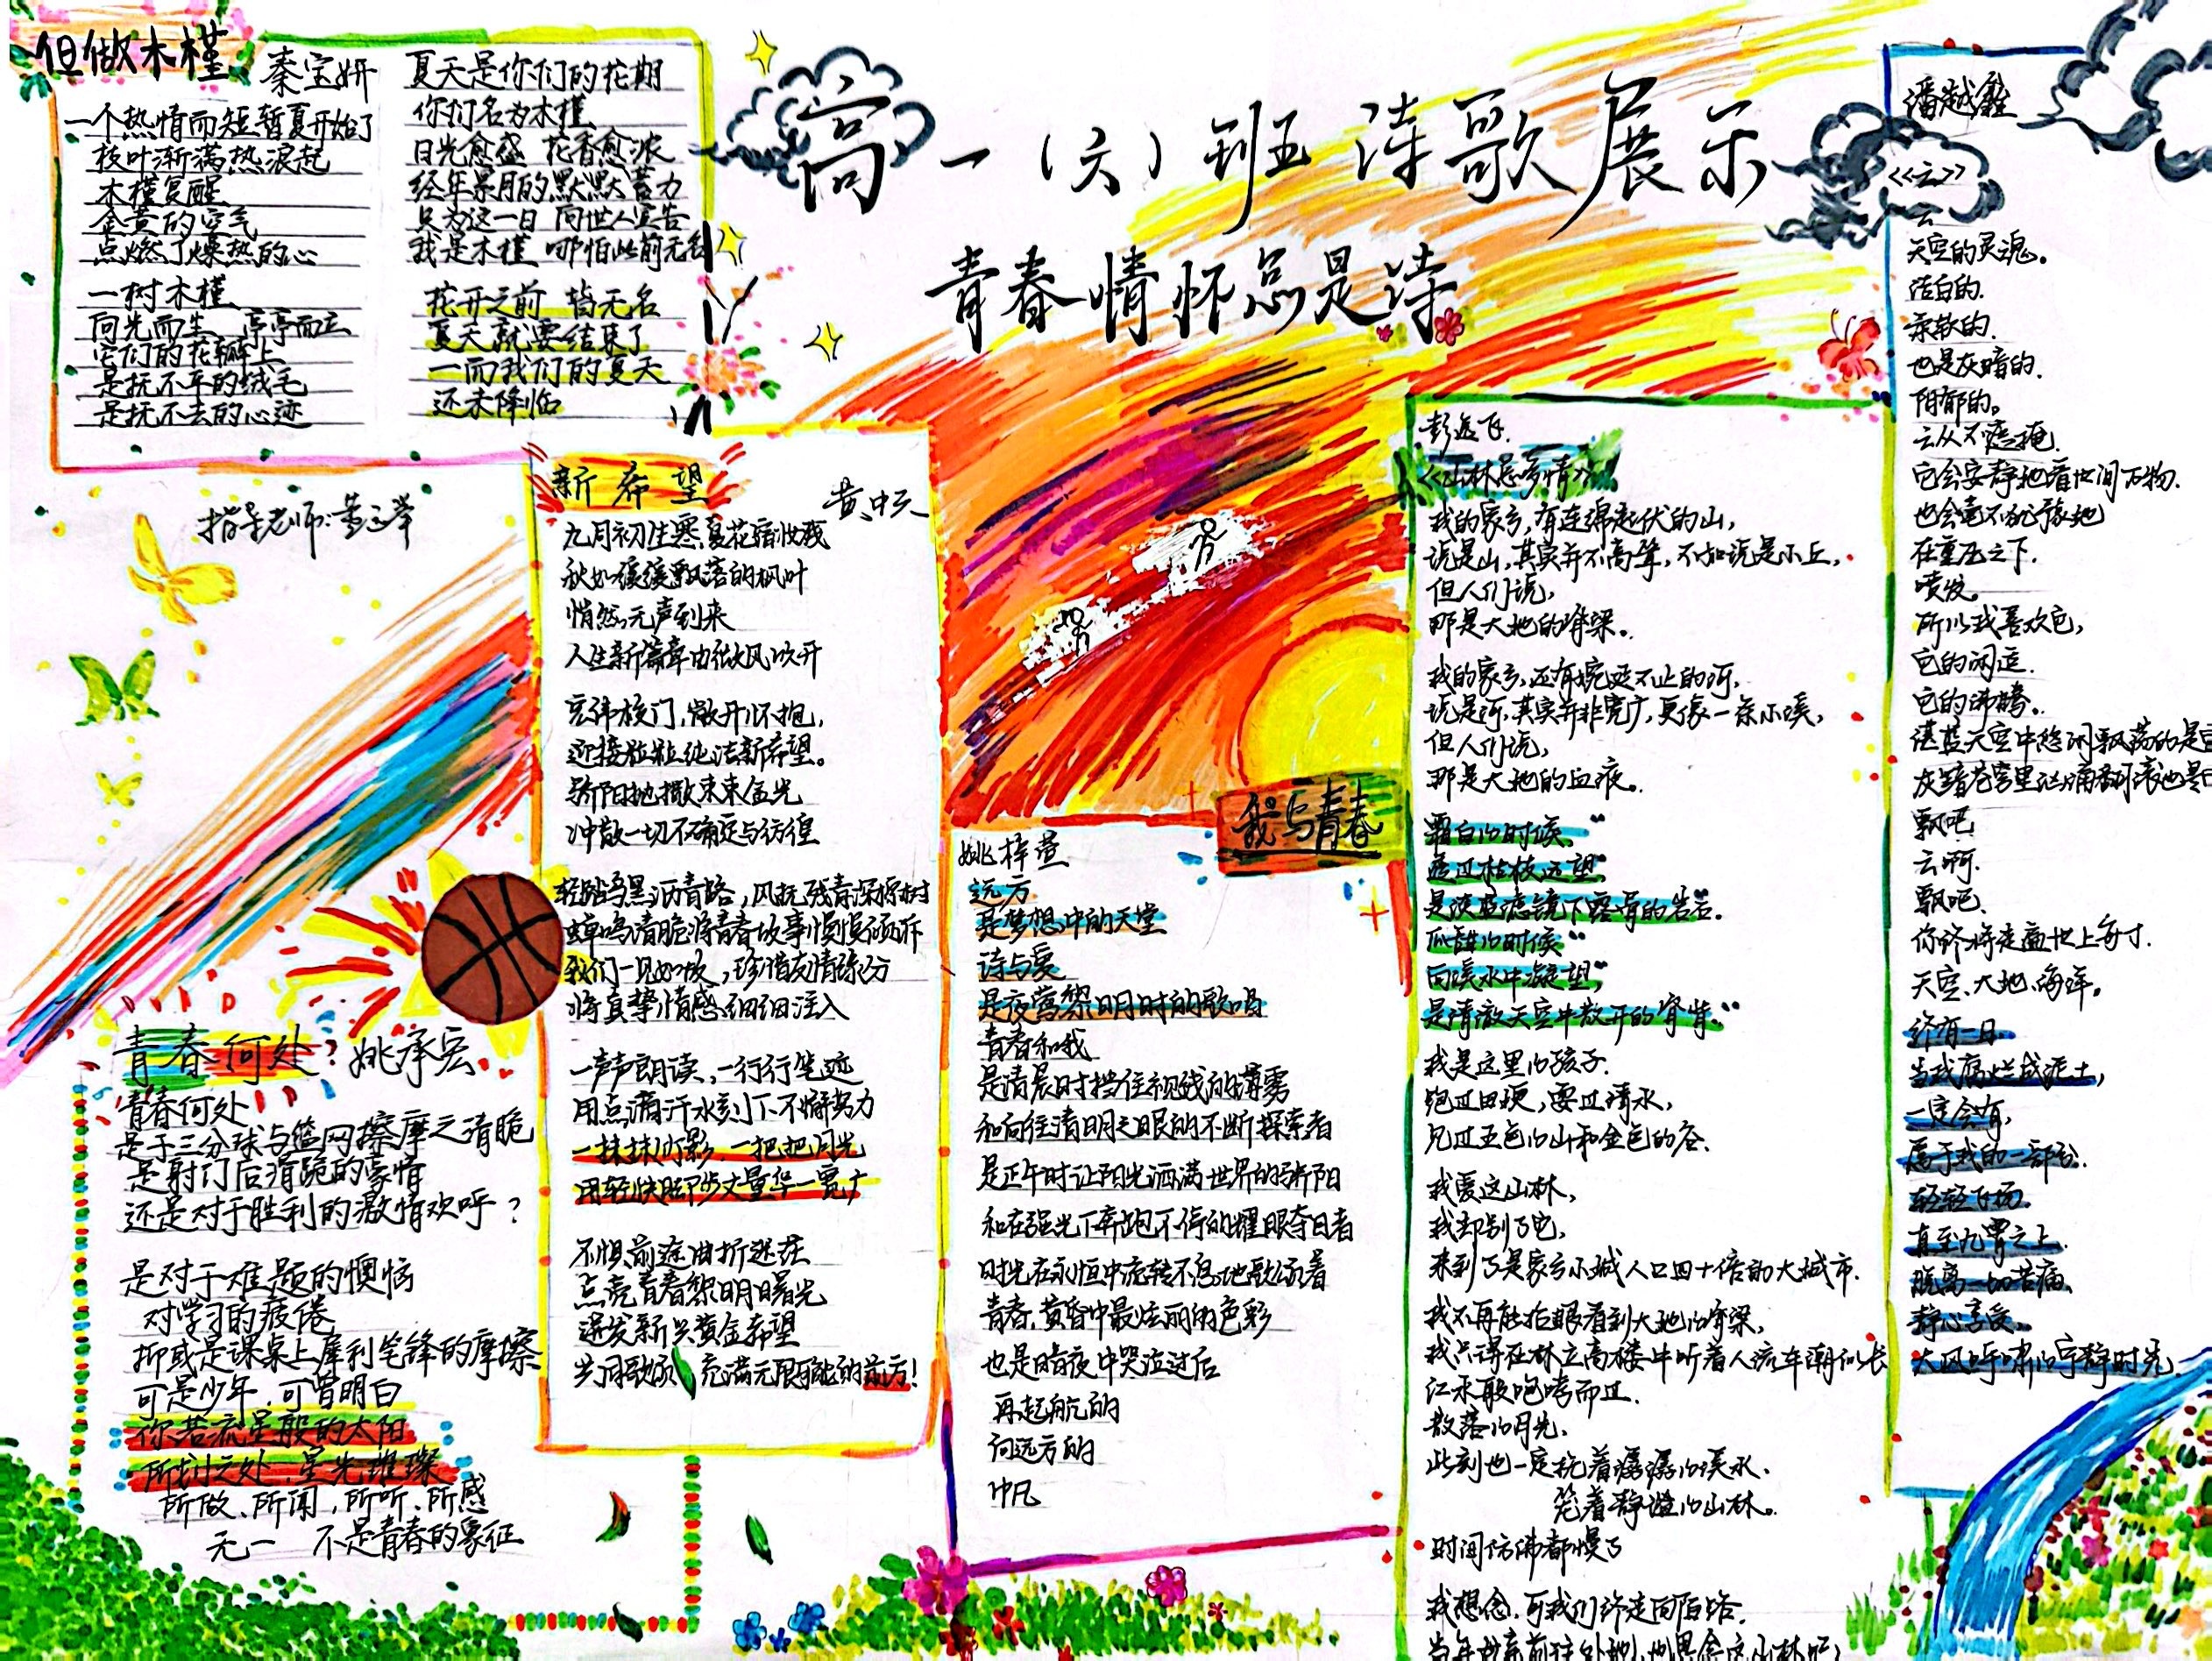 高一（六）班诗歌展示
青春情怀总是诗
但做木槿
秦宝妍
一个热情而短暂夏开始了
枝叶渐满热浪起
木槿复醒
金黄的空气
点燃了燥热的心
一树木槿
向光而生 亭亭而立
它们的花瓣上
是抚不平的绒毛
是抚不去的心迹
夏天是你们的花期
你们名为木槿
日光愈盛 花香愈浓
经年累月的默默蓄力
只为这一日 向世人宣告
我是木槿 哪怕此前无名
花开之前 皆无名
夏天就要结束了
一而我们的夏天
还未降临
指导老师:
新希望
黄中天
九月初生寒夏花宿收残
秋如缓缓飘落的枫叶
悄然无声到来
人生新篇章由微风吹开
宏伟校门,敞开怀抱,
迎接粒粒纯洁新希望。
骄阳地撒束束金光
冲散一切不确定与彷徨
轻踏乌黑沥青路,风抚残青深棕树
蝉鸣清脆将青春故事慢慢倾诉
我们一见如故,珍惜友情缘分
将真挚情感细细注入
一声声朗读,一行行笔迹
用点滴汗水刻下不懈努力
一抹抹灯影,一把把闪光
用轻快脚步丈量华一宽广
不惧前途曲折迷茫
点亮青春黎明曙光
迸发新兴黄金希望
共同歌颂 充满无限可能的前方!
青春何处?
姚承宏
青春何处
是于三分球与篮网擦摩之清脆
是射门后滑跪的豪情
还是对于胜利的激情欢呼?
是对于难题的懊恼
对学习的疲倦
抑或是课桌上犀利笔锋的摩擦
可是少年,可曾明白
你若流星般的太阳
所划之处,星光璀璨
所做、所闻,所听、所感
无一 不是青春的象征
我写青春
姚梓萱
远方
是梦想中的天堂
诗与爱
是夜莺黎明时的歌唱
青春和我
是清晨时挡住视线的薄雾
和向往清明之眼的不断探索者
是正午时让阳光洒满世界的骄阳
和在强光下奔跑不停的耀眼夺目者
时光在永恒中流转不息地歌颂着
青春,黄昏中最炫丽的色彩
也是暗夜中哭泣过后
再起航的
向远方的
帆
彭远飞
《山林总多情》
我的家乡,有连绵起伏的山,
说是山,其实并不高耸,不如说是小丘,
但人们说,
那是大地的脊梁。
我的家乡,还有蜿蜒不止的河,
说是河,其实并非宽广,更像一条小溪,
但人们说,
那是大地的血液。
霜白的时候
透过枯枝远望,
是淡蓝滤镜下露脊的岩石。
的时候
向溪水中凝望,
是清澈天空中散开的脊背。
我是这里的孩子.
跑过田埂,耍过清水,
见过五色的山和金色的谷.
我爱这山林,
我却别了它,
来到了是家乡小城人口四十倍的大城市.
我不再能抬眼看到大地的脊梁,
我只得在林立高楼中听着人流车潮似长
江水般咆哮而过.
散落的月光,
此刻也一定抚着潺潺的溪水、
笼着静谧的山林。
时间仿佛都慢了
我想念,可我们终走向陌路.
潘越
《云》
云
天空的灵魂。
洁白的.
柔软的.
也是灰暗的.
阴郁的。
云从不遮掩.
它会安静地看世间万物.
也会毫不犹豫地
在重压之下.
喷发。
所以我喜欢它,
它的闲适.
它的沸腾.
湛蓝天空中悠闲飘荡的是
灰暗苍穹里汹涌翻滚也是
飘吧
云啊.
飘吧.
你终将走遍世上每寸.
天空、大地、海洋。
终有一日
当我腐烂成泥土,
一定会有,
属于我的一部分.
轻轻飞扬.
直至九霄之上.
脱离一切苦痛、
静心享受.
大风呼啸的宁静时光.